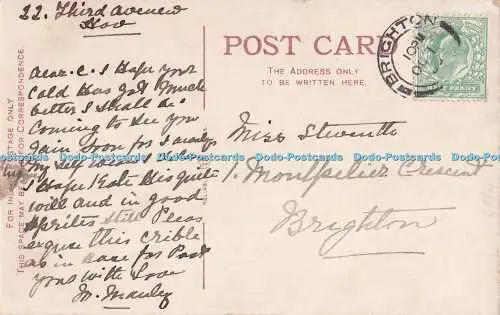 22. Third Avenue
Hov
Dear. C. I Hope your
Cold Has got Much
better I shall be
Coming to See you
gain Soon for I
My Self
I Hope Kate His quite
will and in good
sprites still Pleas
excuse this crible
as in Hase for Post
yous with Love
M.
FOR INLAND POSTAGE ONLY
THIS SPACE MAY BE USED FOR CORRESPONDENCE
POST CARD
THE ADDRESS ONLY
TO BE WRITTEN HERE.
BRIGHTON
PENNY
Miss
1. Montpelier Crescent
Brighton
Dodo-Postcards Dodo-Postcards Dodo-Postcards Dodo-Postcards Dodo-Postcards